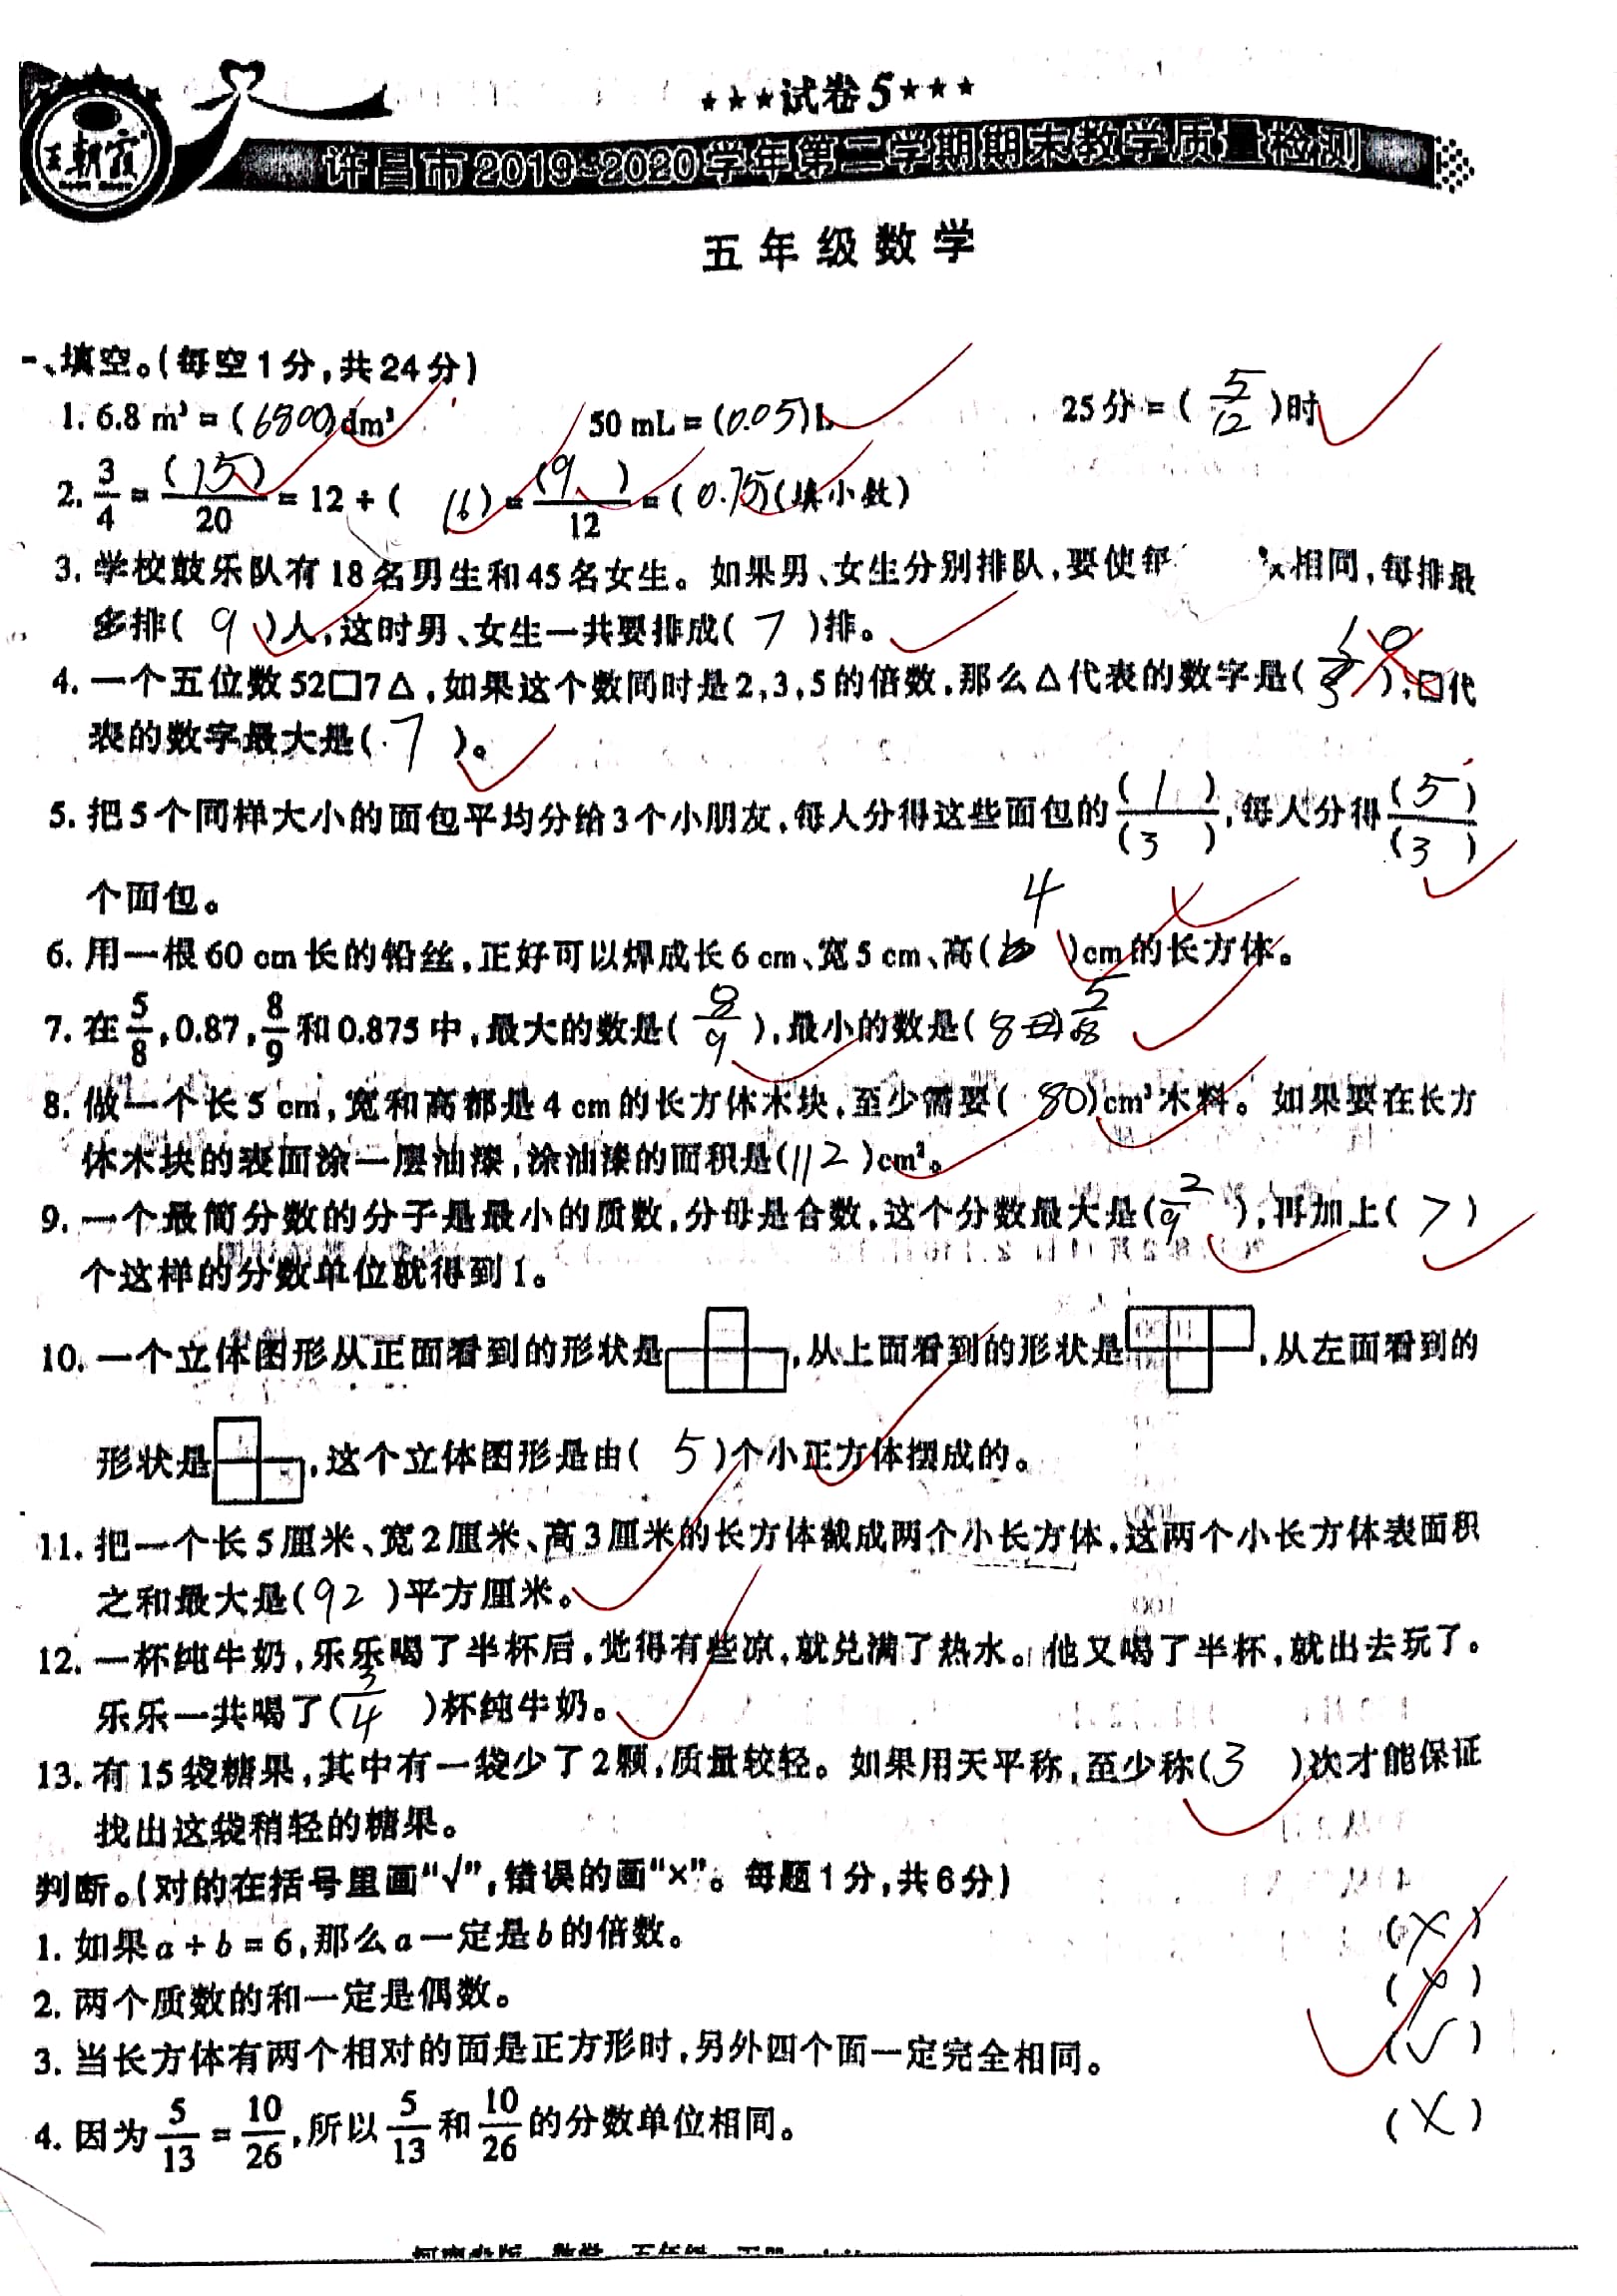 王朝霞
★★★试卷5★★★
许昌市2019~2020学年第二学期期末教学质量检测
五年级数学
一、填空。(每空1分,共24分)
1. 6.8 m³ = (6800)dm³ 50 mL = (0.05)L 25分 = (5/12)时
2. 3/4 = (15)/20 = 12 ÷ ( 16 ) = (9)/12 = ( 0.75 )(填小数)
3. 学校鼓乐队有18名男生和45名女生。如果男、女生分别排队,要使每 相同,每排最
多排( 9 )人,这时男、女生一共要排成( 7 )排。
4. 一个五位数52□7△,如果这个数同时是2,3,5的倍数,那么△代表的数字是( 0 ),□代
表的数字最大是( 7 )。
5. 把5个同样大小的面包平均分给3个小朋友,每人分得这些面包的(1)/(3),每人分得(5)/(3)
个面包。
6. 用一根60 cm长的铅丝,正好可以焊成长6 cm、宽5 cm、高( 4 )cm的长方体。
7. 在5/8,0.87,8/9和0.875中,最大的数是( 8/9 ),最小的数是( 5/8 )
8. 做一个长5 cm,宽和高都是4 cm的长方体木块,至少需要( 80 )cm³木料。如果要在长方
体木块的表面涂一层油漆,涂油漆的面积是(112)cm²。
9. 一个最简分数的分子是最小的质数,分母是合数,这个分数最大是( 2/9 ),再加上( 7 )
个这样的分数单位就得到1。
10. 一个立体图形从正面看到的形状是 ,从上面看到的形状是 ,从左面看到的
形状是 ,这个立体图形是由( 5 )个小正方体摆成的。
11. 把一个长5厘米、宽2厘米、高3厘米的长方体截成两个小长方体,这两个小长方体表面积
之和最大是(92)平方厘米。
12. 一杯纯牛奶,乐乐喝了半杯后,觉得有些凉,就兑满了热水。他又喝了半杯,就出去玩了。
乐乐一共喝了( 3/4 )杯纯牛奶。
13. 有15袋糖果,其中有一袋少了2颗,质量较轻。如果用天平称,至少称( 3 )次才能保证
找出这袋稍轻的糖果。
判断。(对的在括号里画“√”,错误的画“×”。每题1分,共6分)
1. 如果a ÷ b = 6,那么a一定是b的倍数。 (×)
2. 两个质数的和一定是偶数。 (×)
3. 当长方体有两个相对的面是正方形时,另外四个面一定完全相同。 (√)
4. 因为5/13 = 10/26,所以5/13和10/26的分数单位相同。 (×)